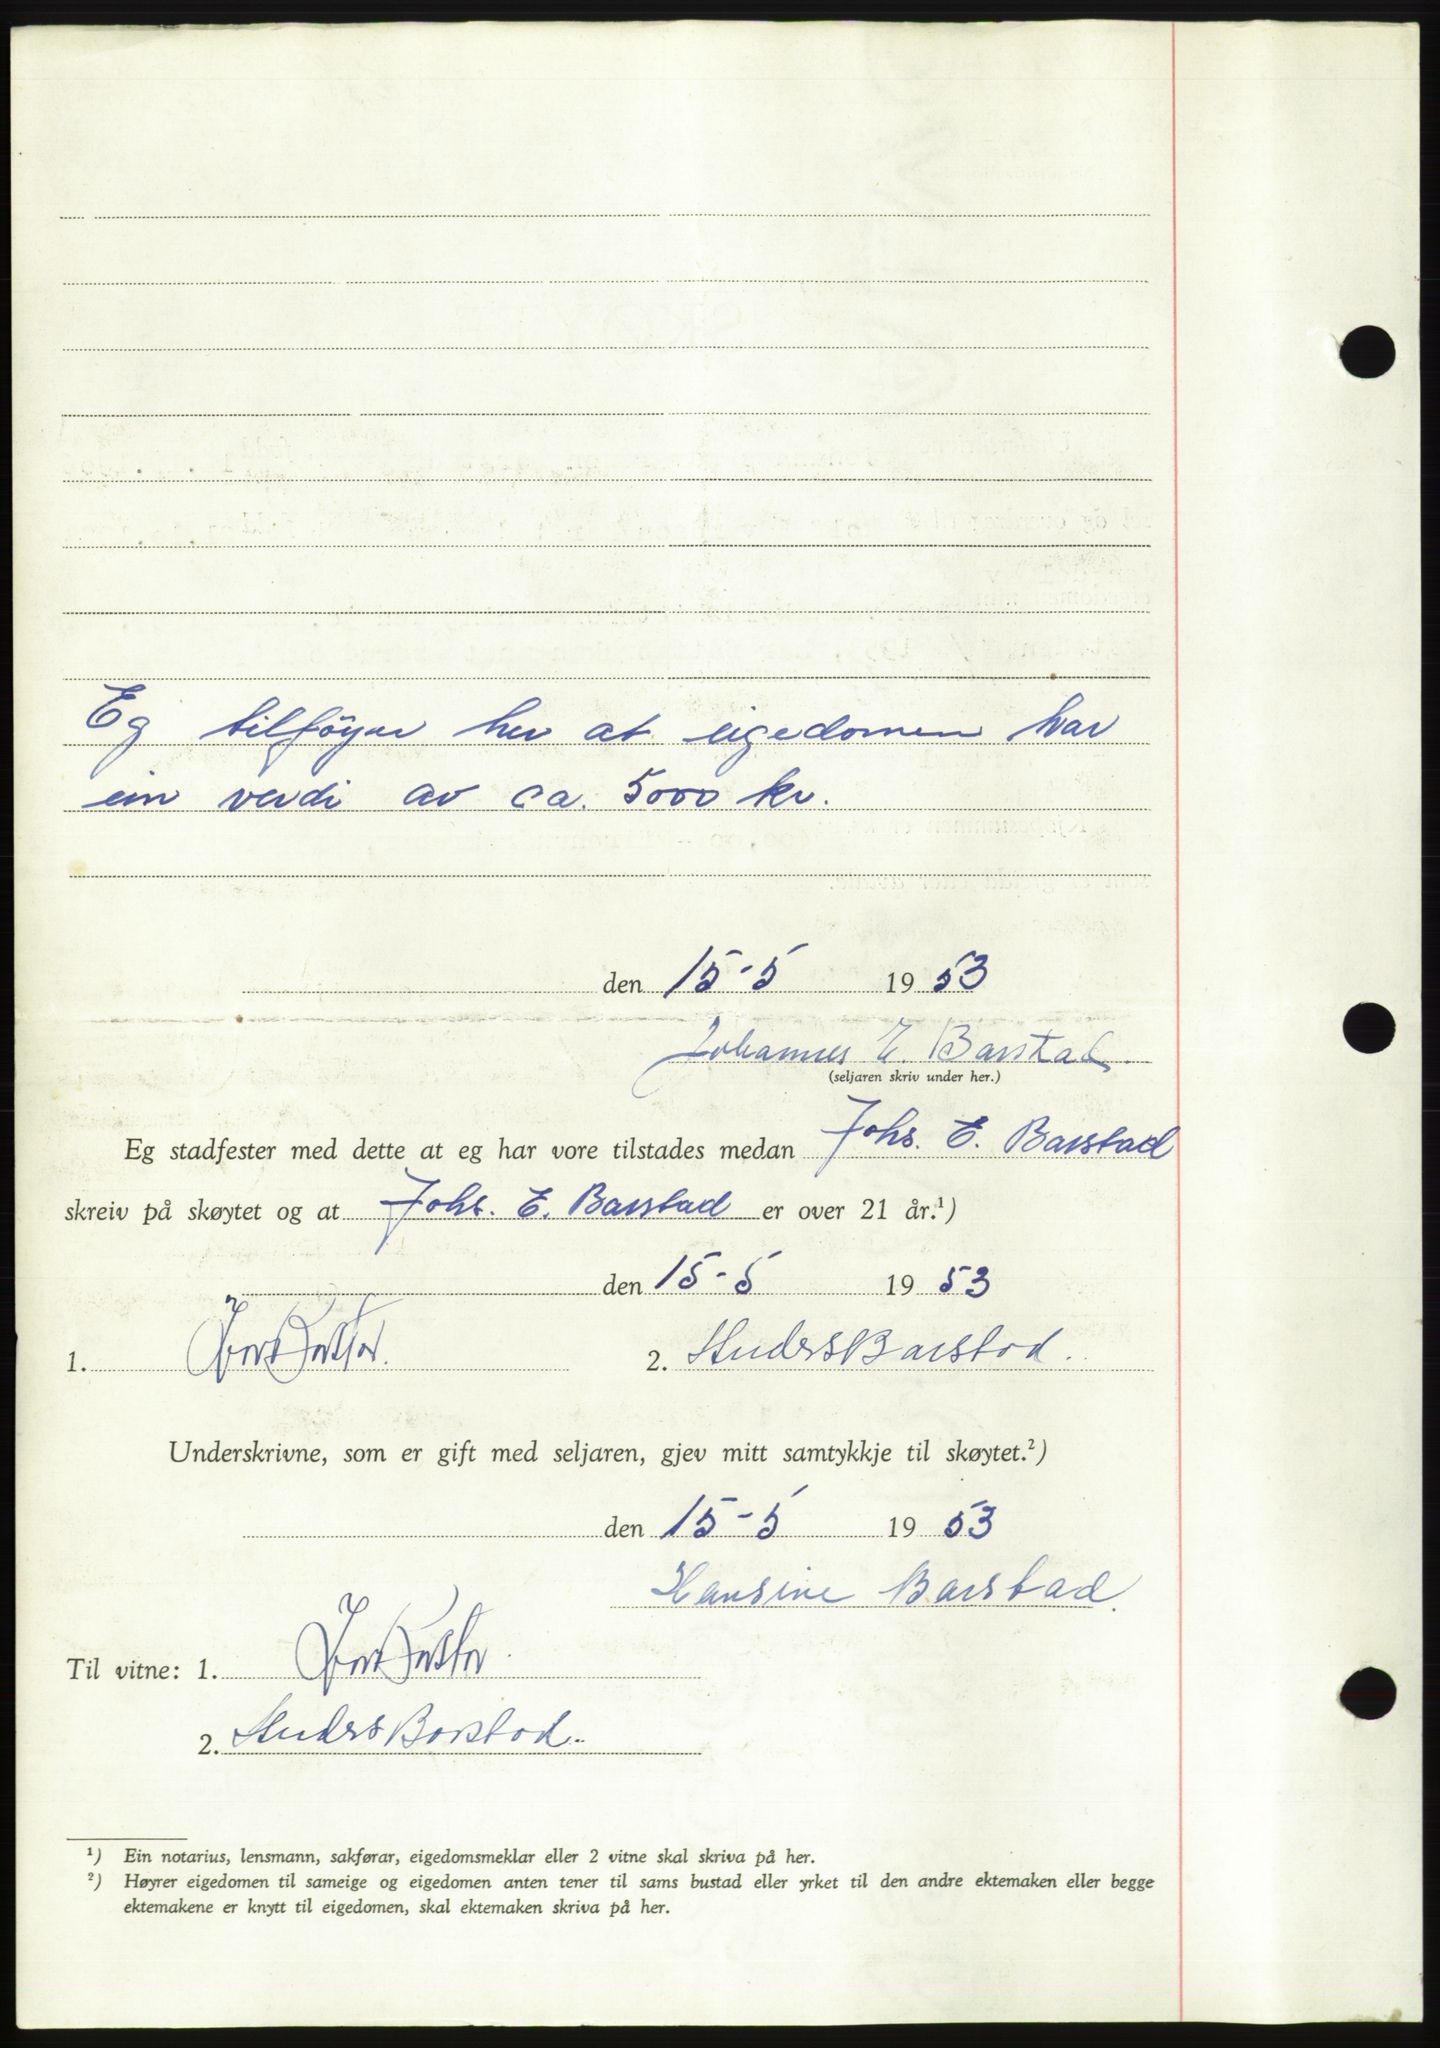 Eg tilföyer her at eigedomen har
ein verdi av ca. 5000 kr.
den 15-5 1953
Johannes E. Barstad.
(seljaren skriv under her.)
Eg stadfester med dette at eg har vore tilstades medan Johs. E. Barstad
skreiv på skøytet og at Johs. E. Barstad er over 21 år.¹)
den 15-5 1953
1. 2. Anders Barstad.
Underskrivne, som er gift med seljaren, gjev mitt samtykkje til skøytet.²)
den 15-5 1953
Hansine Barstad.
Til vitne: 1.
2. Anders Barstad.
¹) Ein notarius, lensmann, sakførar, eigedomsmeklar eller 2 vitne skal skriva på her.
²) Høyrer eigedomen til sameige og eigedomen anten tener til sams bustad eller yrket til den andre ektemaken eller begge
ektemakene er knytt til eigedomen, skal ektemaken skriva på her.